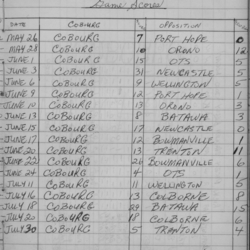 Game Scores
DATE COBOURG OPPOSITION
MAY 26 COBOURG 7 PORT HOPE 0
MAY 28 COBOURG 10 ORONO 12
JUNE 1 COBOURG 15 OTS 5
JUNE 3 COBOURG 31 NEWCASTLE 5
JUNE 6 COBOURG 9 WELLINGTON 5
JUNE 9 COBOURG 12 PORT HOPE 1
JUNE 10 COBOURG 13 ORONO
JUNE 13 COBOURG 8 BATAWA 3
JUNE 15 COBOURG 17 NEWCASTLE 0
JUNE 17 COBOURG 12 BOWMANVILLE 1
JUNE 20 COBOURG 13 TRENTON 11
JUNE 22 COBOURG 26 BOWMANVILLE 6
JUNE 24 COBOURG 4 OTS 1
JULY 11 COBOURG 11 WELLINGTON 5
JULY 16 COBOURG 13 COLBORNE 8
JULY 18 COBOURG 29 BATAWA 15
JULY 20 COBOURG 18 COLBORNE 6
JULY 30 COBOURG 5 TRANTON 4